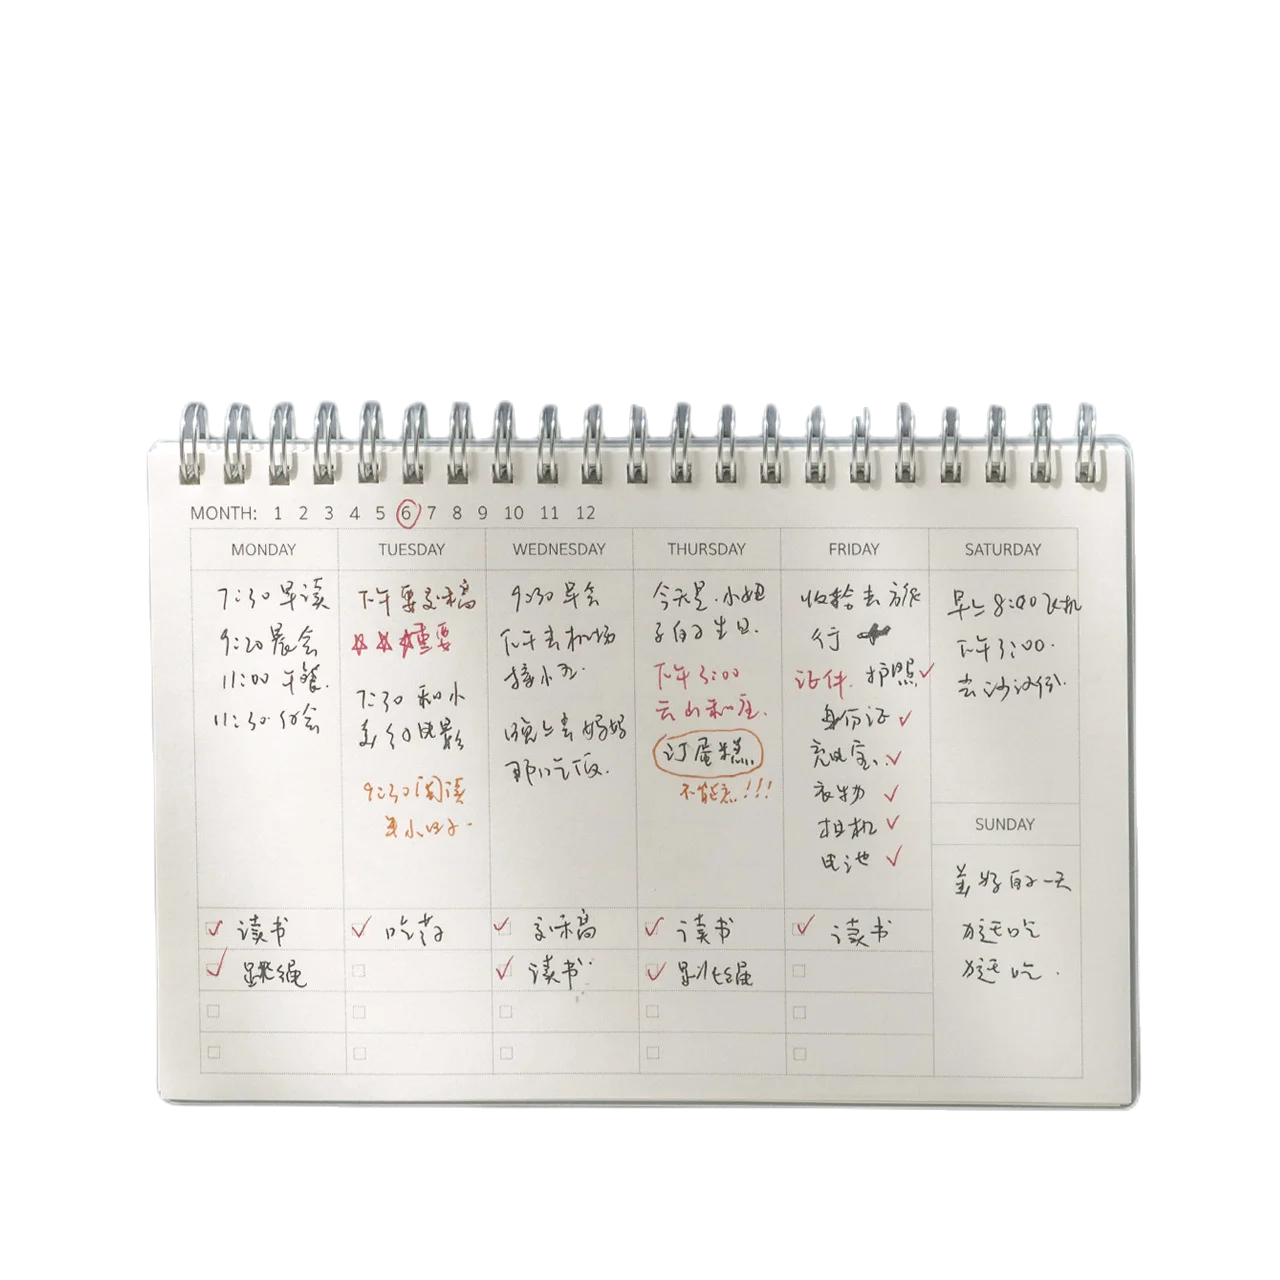 MONTH: 1 2 3 4 5 6 7 8 9 10 11 12
MONDAY
7:30 早读
9:20 晨会
11:00 午餐.
11:30 例会
读书
跳绳
TUESDAY
下午要交稿
重要
7:30 和小
美约电影
9:30 阅读
美小日子.
吃药
WEDNESDAY
9:30 早会
下午去机场
接小五.
晚上去妈妈
那吃饭.
交稿
读书
THURSDAY
今天是小妞
子的生日.
下午3:00
云山和庄.
订蛋糕
不能忘!!!
读书
跳绳
FRIDAY
收拾去旅
行
证件. 护照
身份证
充电宝.
衣物
相机
电池
读书
SATURDAY
早上8:00飞机
下午3:00.
去
SUNDAY
美好的一天
放适吃
放适吃.